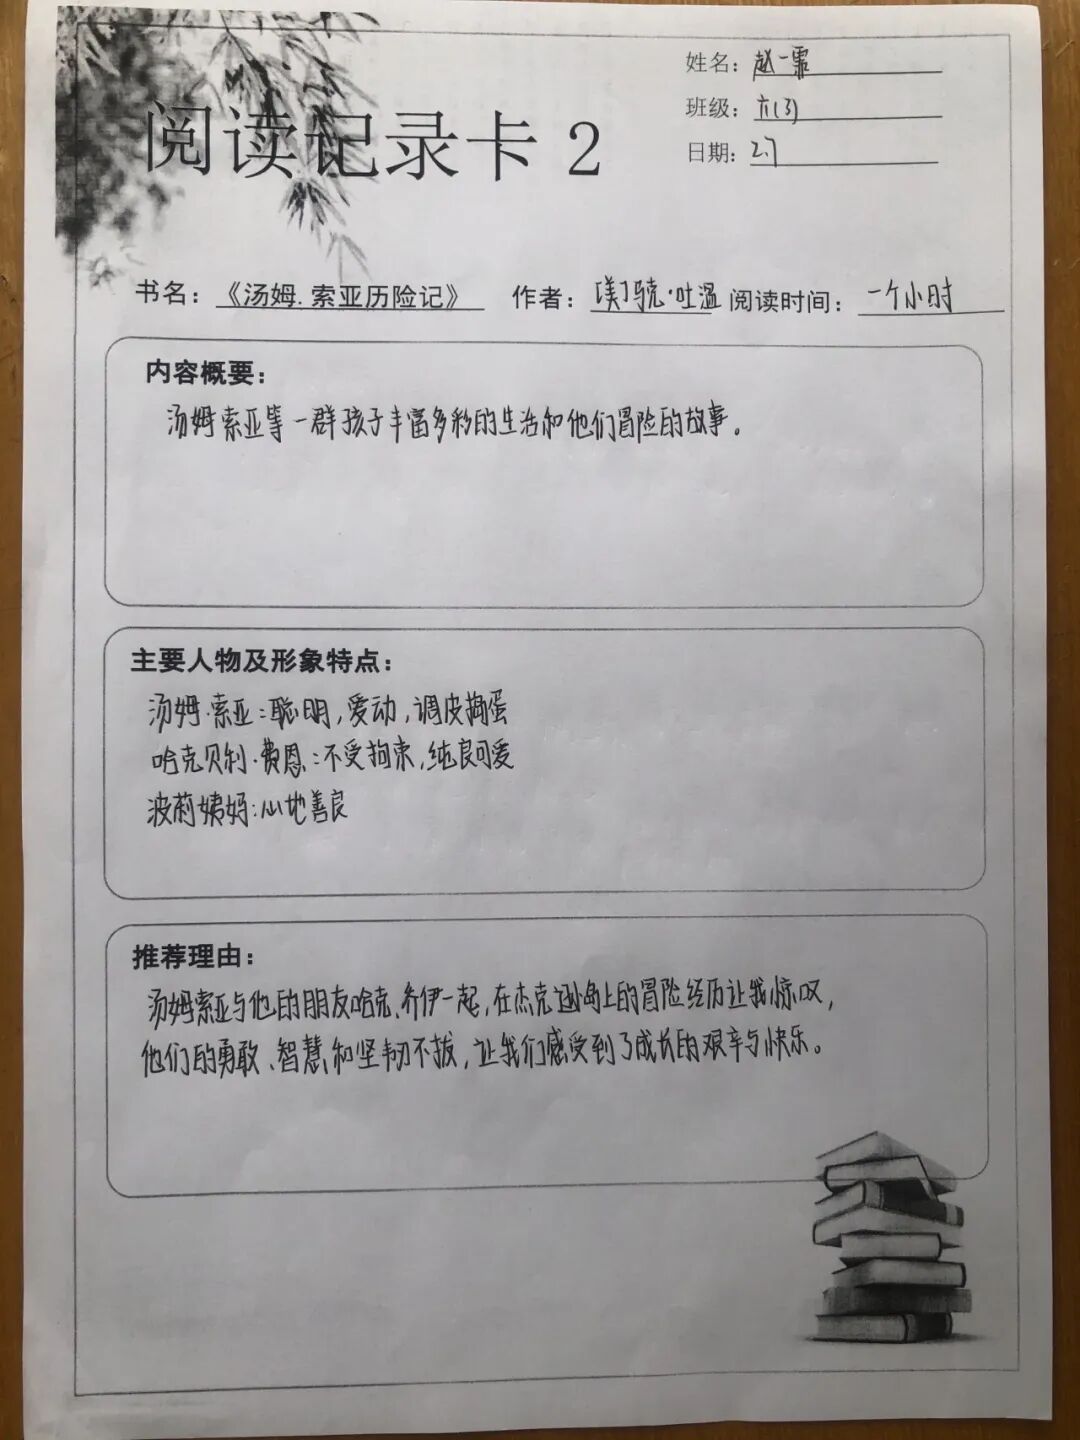 阅读记录卡 2
姓名：赵一霏
班级：六(3)
日期：2.7
书名：《汤姆.索亚历险记》 作者：[美]马克·吐温 阅读时间：一个小时
内容概要：
汤姆索亚等一群孩子丰富多彩的生活和他们冒险的故事。
主要人物及形象特点：
汤姆·索亚：聪明，爱动，调皮捣蛋
哈克贝利·费恩：不受拘束，纯良可爱
波莉姨妈：心地善良
推荐理由：
汤姆索亚与他的朋友哈克、乔伊一起，在杰克逊岛上的冒险经历让我惊叹，
他们的勇敢、智慧和坚韧不拔，让我们感受到了成长的艰辛与快乐。